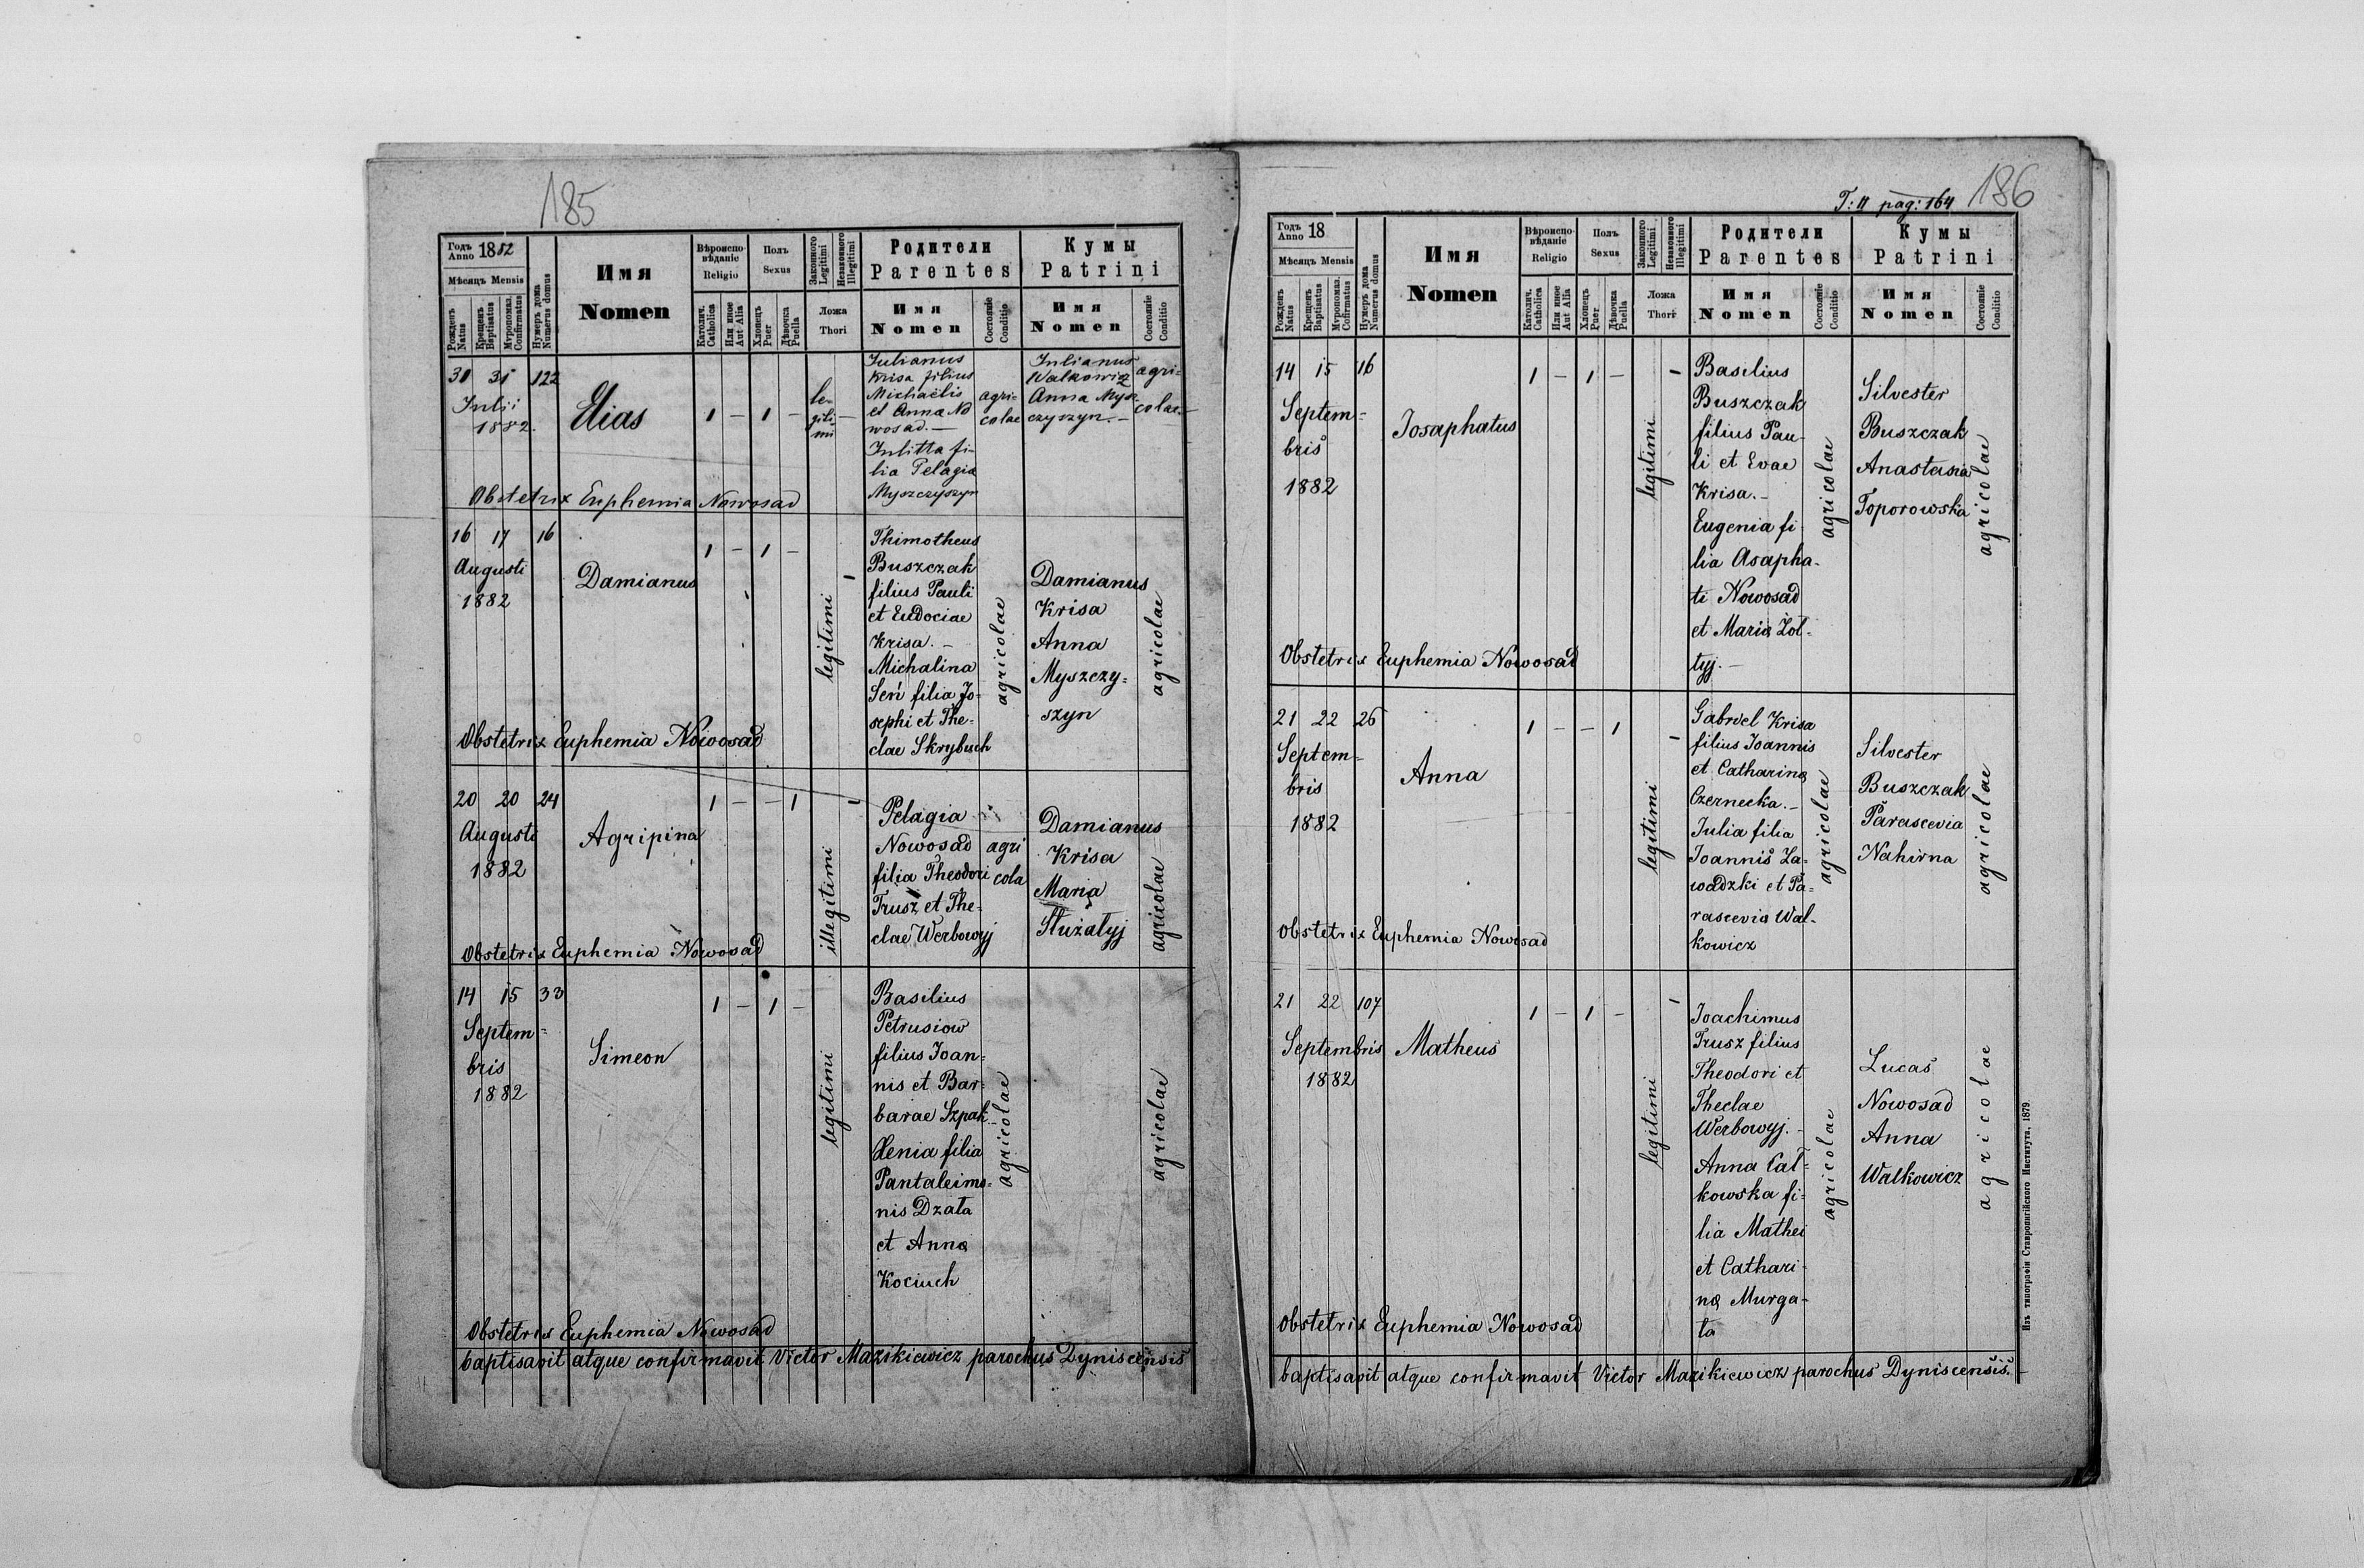 185
Годъ Anno 1882
Мѣсяцъ Mensis
Рожденъ Natus
Крещенъ Baptisatus
Мѵропомаз. Confirmatus
Нумеръ дома Numerus domus
Имя
Nomen
Вѣроиспо-
вѣданіе
Religio
Католич. Catholica
Или иное Aut Alia
Полъ
Sexus
Хлопецъ Puer
Дѣвочка Puella
Законного Legitimi
Незаконного Illegitimi
Ложа
Thori
Родители
Parentes
Имя
Nomen
Состояніе Conditio
Кумы
Patrini
Имя
Nomen
Состояніе Conditio
31 122
Julii
1882.
Elias
1 – 1 –
le-
giti-
mi
Julianus
Krisa filius
Michaëlis
et Anna No
wosad.–
Julitta fi-
lia Pelagia
Myszczyszyn
agri-
colae
Julianus
Walkowicz
Anna Mysz-
czyszyn.–
agri-
colae.
Obstetrix Euphemia Nowosad
16 17 16
Augusti
1882
Damianus
1 – 1 –
legitimi
Thimotheus
Buszczak
filius Pauli
et Eudociae
Krisa. –
Michalina
Seń filia Jo-
sephi et The-
clae Skrybuch
agricolae
Damianus
Krisa
Anna
Myszczy=
szyn
agricolae
Obstetrix Euphemia Nowosad
20 20 24
Augusti
1882
Agripina
1 – – 1
illegitimi
Pelagia
Nowosad
filia Theodori
Trusz et The-
clae Werbowyj
agri
cola
Damianus
Krisa
Maria
Służałyj
agricolae
Obstetrix Euphemia Nowosad
14 15 33
Septem=
bris
1882
Simeon
1 – 1 –
legitimi
Basilius
Petrusiow
filius Joan=
nis et Bar-
barae Szpak
Xenia filia
Pantaleimo=
nis Dzała
et Anna
Kociuch
agricolae
agricolae
Obstetrix Euphemia Nowosad
baptisavit atque confirmavit Victor Mazikiewicz parochus Dyniscensis
T: II pag: 164
186
Годъ Anno 18
Мѣсяцъ Mensis
Рожденъ Natus
Крещенъ Baptisatus
Мѵропомаз. Confirmatus
Нумеръ дома Numerus domus
Имя
Nomen
Вѣроиспо-
вѣданіе
Religio
Католич. Catholica
Или иное Aut Alia
Полъ
Sexus
Хлопецъ Puer
Дѣвочка Puella
Законного Legitimi
Незаконного Illegitimi
Ложа
Thori
Родители
Parentes
Имя
Nomen
Состояніе Conditio
Кумы
Patrini
Имя
Nomen
Состояніе Conditio
14 15 16
Septem=
bris
1882
Josaphatus
1 – 1 –
legitimi
Basilius
Buszczak
filius Pau-
li et Evae
Krisa.–
Eugenia fi-
lia Asapha-
ti Nowosad
et Maria Żoł-
tyj.–
agricolae
Silvester
Buszczak
Anastasia
Toporowska
agricolae
Obstetrix Euphemia Nowosad
21 22 26
Septem=
bris
1882
Anna
1 – – 1
legitimi
Gabriel Krisa
filius Joannis
et Catharina
Czernecka.–
Julia filia
Joannis Za-
wadzki et Pa=
rascevia Wal-
kowicz
agricolae
Silvester
Buszczak
Parascevia
Nahirna
agricolae
Obstetrix Euphemia Nowosad
21 22 107
Septembris
1882
Matheus
1 – 1 –
legitimi
Joachimus
Trusz filius
Theodori et
Theclae
Werbowyj.–
Anna Cał-
kowska fi-
lia Mathei
et Cathari-
na Murga-
ła
agricolae
Lucas
Nowosad
Anna
Walkowicz
agricolae
Obstetrix Euphemia Nowosad
baptisavit atque confirmavit Victor Mazikiewicz parochus Dyniscensis.–
Изъ типографіи Ставропигійского Института, 1879.